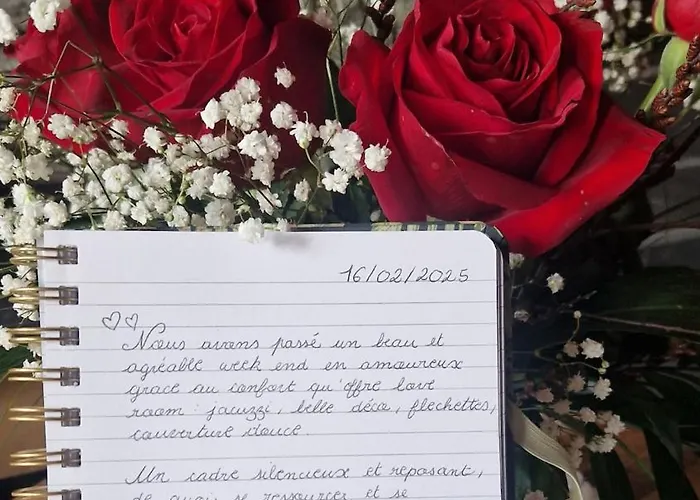 16/02/2025
Nous avons passé un beau et
agréable week end en amoureux
grace au confort qu'offre love
room : jacuzzi, belle déco, flechettes,
couverture douce.
Un cadre silencieux et reposant,
de quoi se ressourcer et se